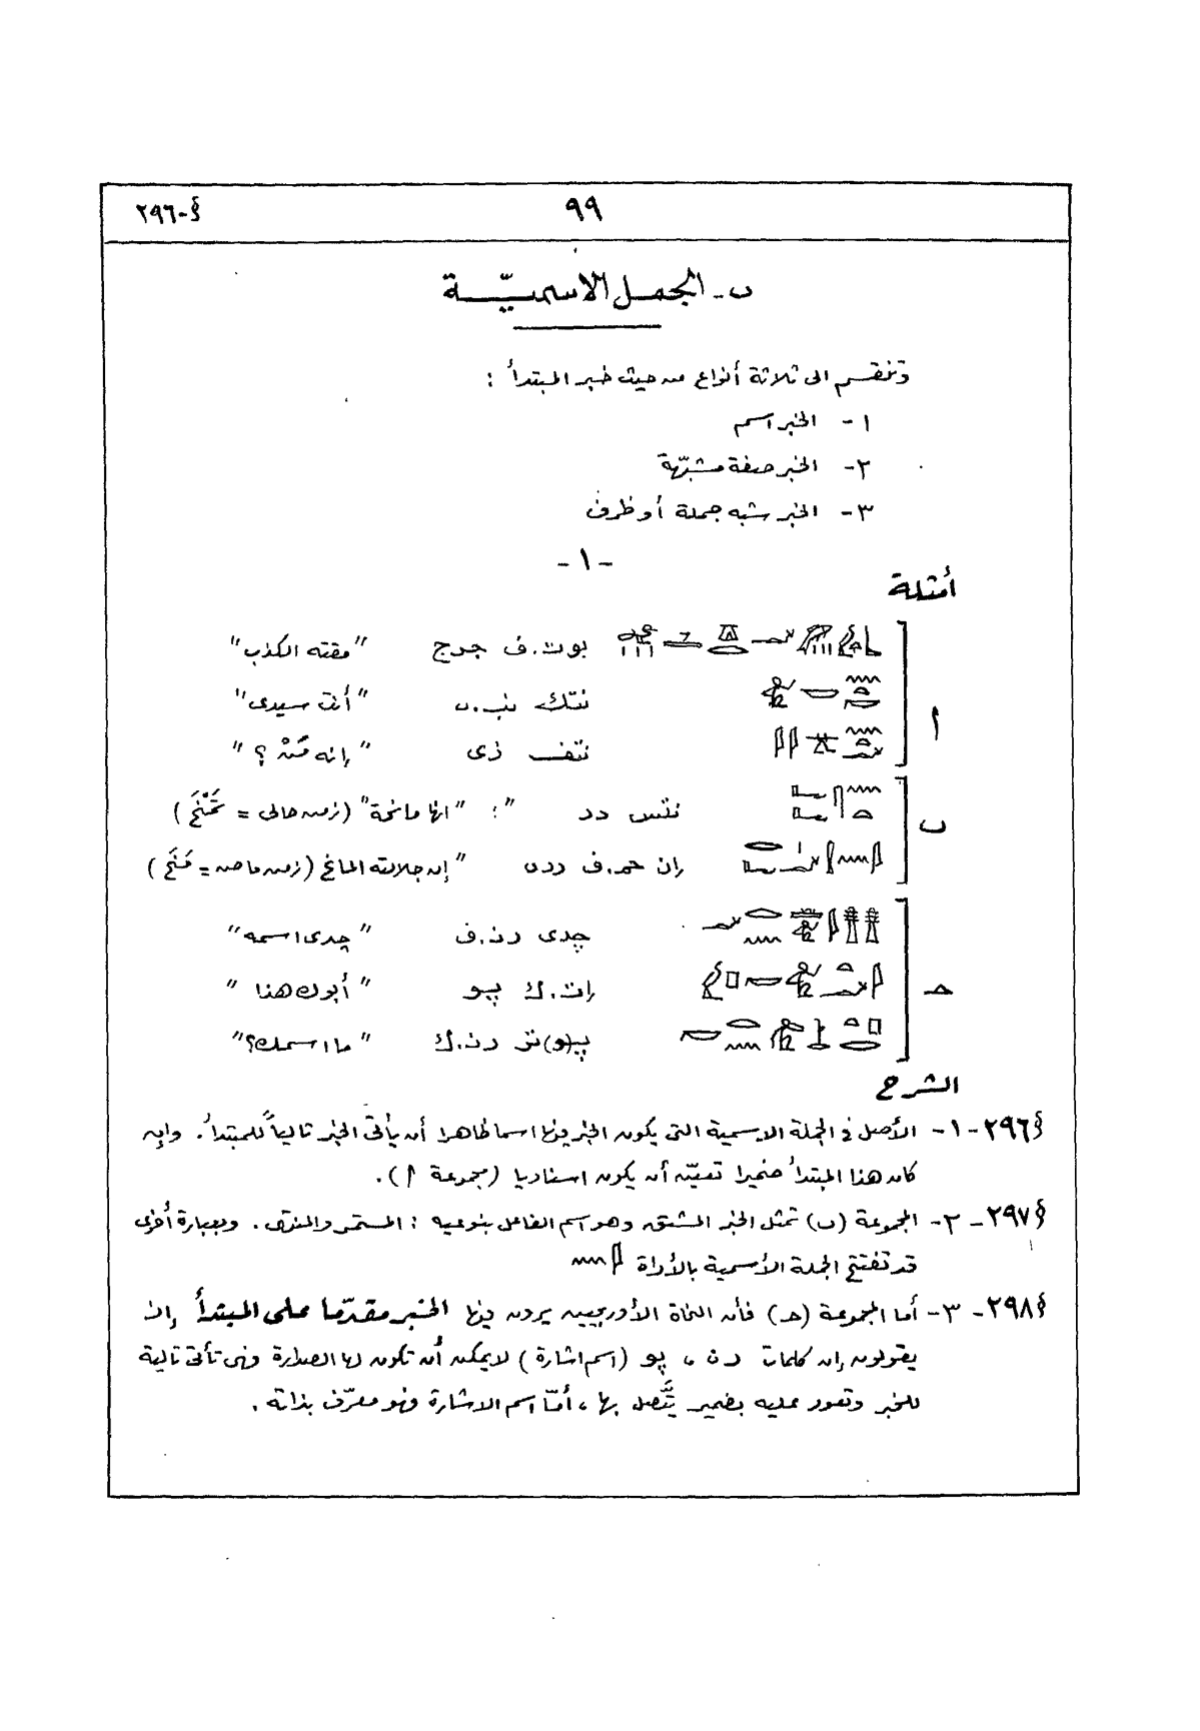 §-٢٩٦
٩٩
ب- الجمل الاسميّة
وتنقسم الى ثلاثة أنواع من حيث خبر المبتدأ :
١- الخبر اسم
٢- الخبر صفة مشبّهة
٣- الخبر شبه جملة أو ظرف
-١-
أمثلة
أ
بوت.ف جرج "مقته الكذب"
نتك نب.ى "أنت سيدى"
نتف زى "إنه مَنْ ؟"
ب
نتس دد "؛ "انها مانحة" (زمن حالى = تَمْنَح)
ان حم.ف ددن "إن جلالته المانح (زمن ماضى = مَنَح)
ج
چدى رن.ف "چدى اسمه"
ات.ك پو "أبوك هذا"
پ(و)تر رن.ك "ما اسمك؟"
الشرح
§٢٩٦-١- الأصل فى الجملة الاسمية التى يكون الخبر فيها اسما ظاهرا أن يأتى الخبر تالياً للمبتدأ. وإن
كان هذا المبتدأ ضميرا تعيّن أن يكون اسناديا (مجموعة أ).
§٢٩٧-٢- المجموعة (ب) تمثل الخبر المشتق وهو اسم الفاعل بنوعيه : المستمر والمنتهى. وبعبارة أخرى
قد تفتتح الجملة الأسمية بالأداة 𓇋𓈖
§٢٩٨-٣- أما المجموعة (ج) فأن النحاة الأوربيين يرون فيها الخبر مقدّما على المبتدأ إذ
يقولون إن كلمات رن ، پو (اسم اشارة) لا يمكن أن تكون لها الصدارة فهى تأتى تالية
للخبر وتعود عليه بضمير يتَّصل بها ، أمّا اسم الاشارة فهو معرّف بذاته .